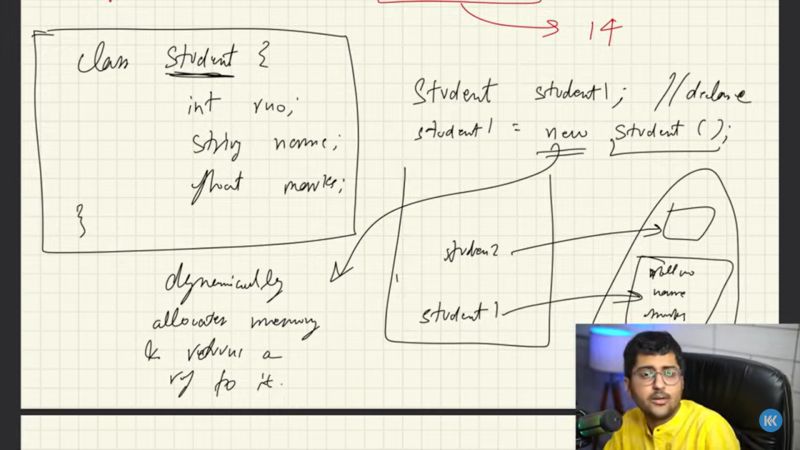 14
class Student {
int rno;
string name;
float marks;
}
Student student1; // declare
student1 = new Student();
studen2
student1
rollno
name
marks
dynamically
allocates memory
& returns a
ref to it.
K